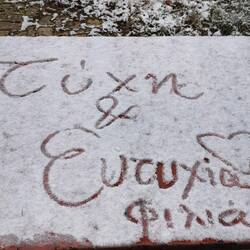 Τύχη
&
Ευτυχία
φιλία